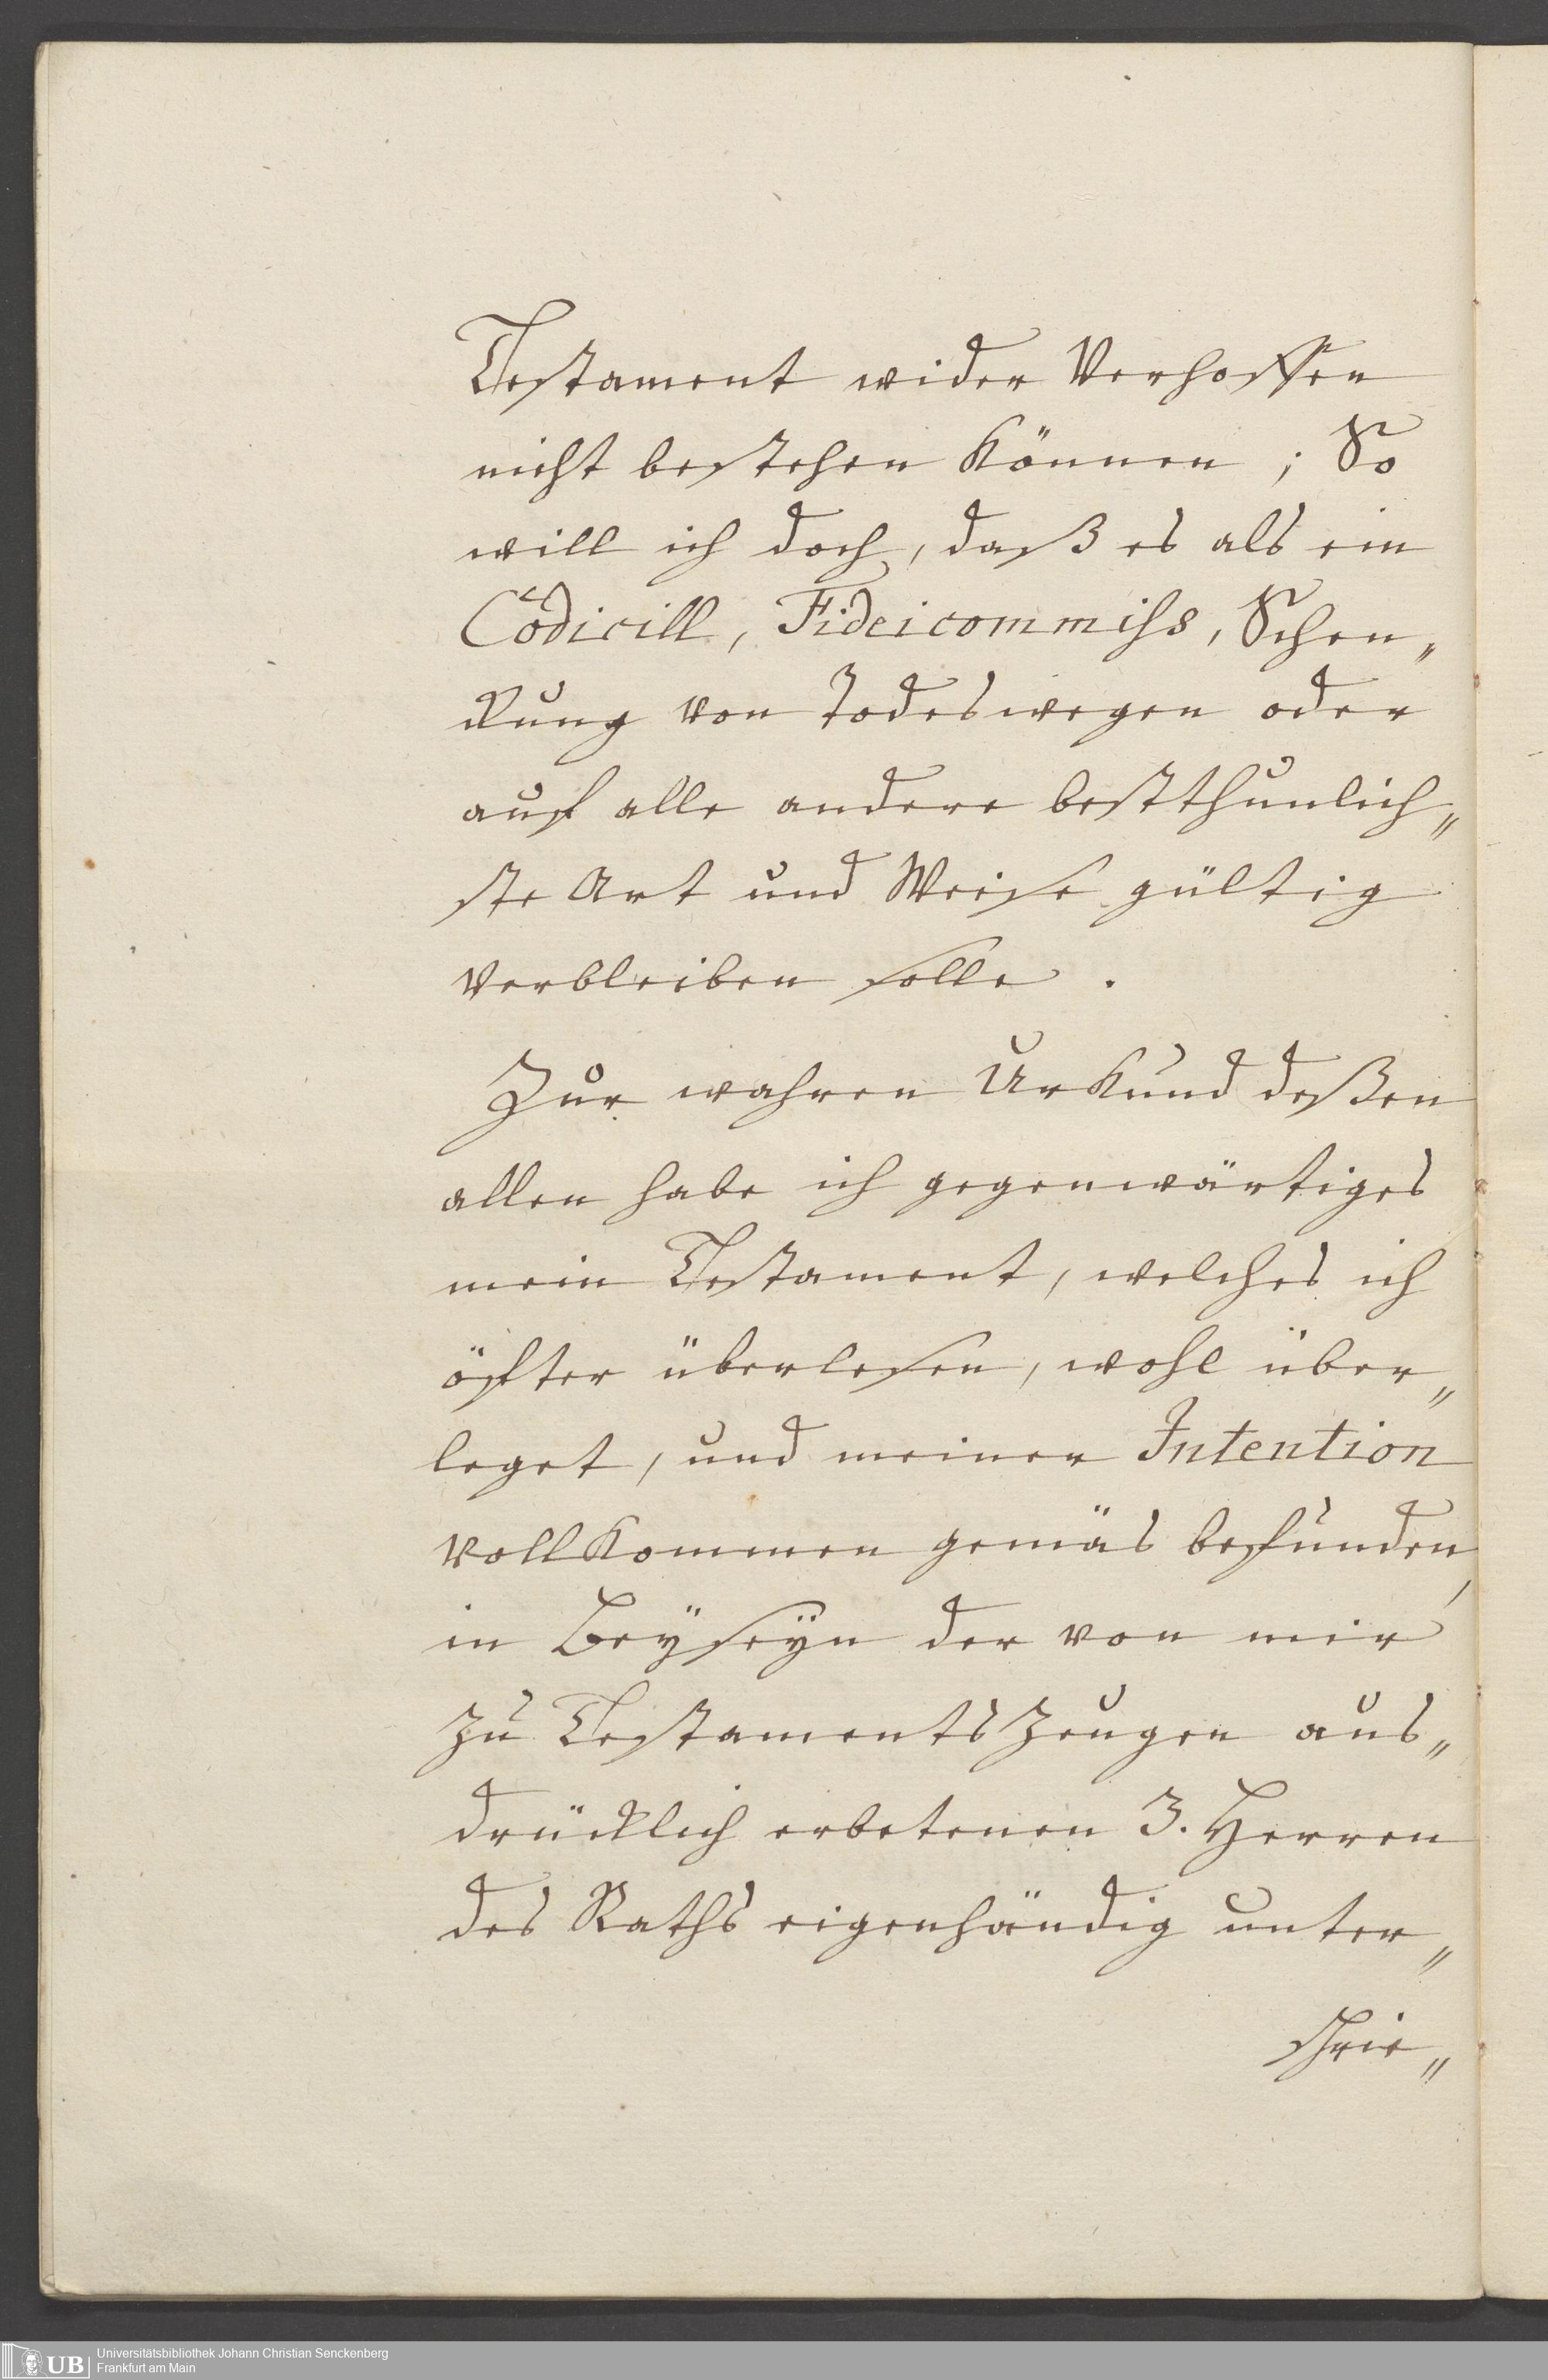 Testament wider Verhoffen
nicht bestehen können; So
will ich doch, daß es als ein
Codicill, Fideicommiss, Schen„
ckung von Todeswegen oder
auf alle andere bestthunlich„
ste Art und Weise gültig
verbleiben solle.
Zur wahren Urkund deßen
allen habe ich gegenwärtiges
mein Testament, welches ich
öfter überlesen, wohl über„
leget, und meiner Intention
vollkommen gemäs befunden,
in Beÿseÿn der von mir
zu Testaments Zeugen aus„
drücklich erbetenen 3. Herren
des Raths eigenhändig unter„
schrie„
UB
Universitätsbibliothek Johann Christian Senckenberg
Frankfurt am Main